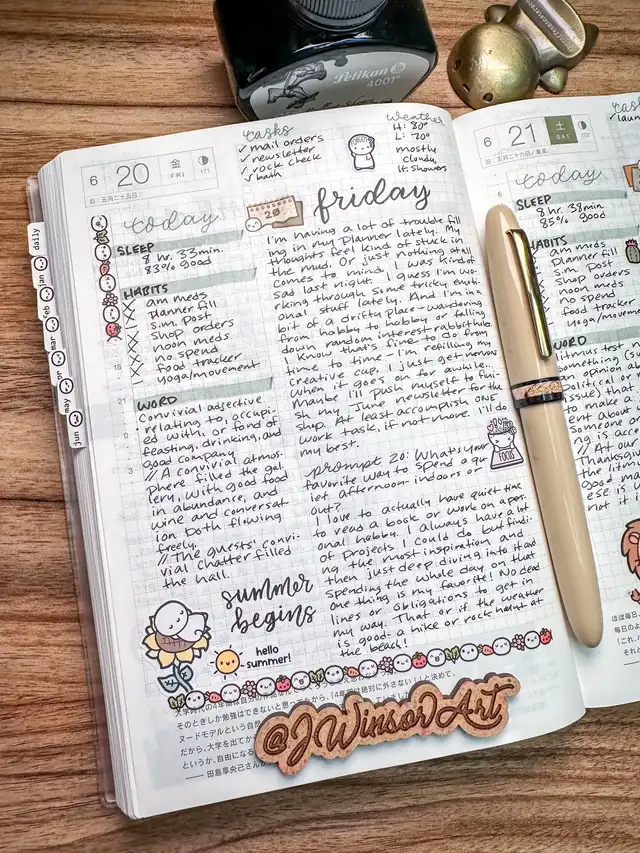 Pelikan
4001®
tasks
✓ mail orders
✓ newsletter
✓ rock check
✓ bath
weather
H: 80°
L: 70°
mostly
cloudy
lt. showers
6 20 金 FRI 171
旧：五月二十五日
today
SLEEP
8 hr. 33min.
83% good
HABITS
am meds
planner fill
s.m. post
shop orders
noon meds
no spend
food tracker
yoga/movement
WORD
Convivial adjective
relating to, occupi-
ed with, or fond of
feasting, drinking, and
good company
// A convivial atmos-
phere filled the gal
lery, with good food
in abundance, and
wine and conversat-
ion both flowing
freely.
// The guests' convi-
vial chatter filled
the hall.
summer
begins
hello
summer!
20
friday
I'm having a lot of trouble fill
ing in my planner lately. My
thoughts feel kind of stuck in
the mud. Or just nothing at all
comes to mind. I was kind of
sad last night. I guess I'm wo-
rking through some tricky emoti-
onal stuff lately. And I'm in
a bit of a drifty place - wandering
from hobby to hobby or falling
down random interest rabbit holes.
I know that's fine to do from
time to time - I'm refilling my
creative cup. I just get nervous
when it goes on for awhile...
Maybe I'll push myself to fini-
sh my June newsletter for the
shop. At least accomplish one
work task, if not more. I'll do
my best.
FOCUS
prompt 20: What's your
favorite way to spend a qu
iet afternoon indoors or
out?
I love to actually have quiet time
to read a book or work on a pers
onal hobby. I always have a lot
of projects I could do but findi-
ng the most inspiration and
then just deep diving into it and
spending the whole day on that
one thing is my favorite! No dead
lines or obligations to get in
my way. That or if the weather
is good - a hike or rock hunt at
the beach!
そのときしか勉強はできないと思ってたから、
ヌードモデルという自然
だから、大学を出てから
というか、自由になる
@JWinsorArt
daily
jan
feb
mar
apr
may
jun
6 21 土 SAT 172
today
SLEEP
8 hr. 38min.
85% good
HABITS
am meds
planner fill
s.m. post
shop orders
noon meds
no spend
food tracker
yoga/movement
WORD